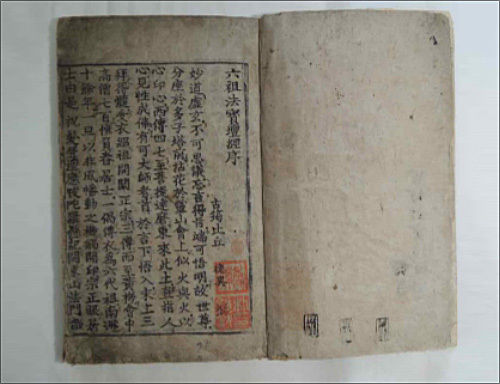 六祖法寶壇經序
古筠比丘 德異 撰
妙道虛玄不可思議忘言得旨端可悟明故世尊
分座於多子塔前拈花於靈山會上似火與火以
心印心西傳四七至菩提達磨東來此土直指人
心見性成佛有可大師者首於言下悟入末上三
拜得髓受衣紹祖開闡正宗三傳而至黃梅會中
高僧七百惟負舂居士一偈傳衣為六代祖南遯
十餘年一旦以非風幡動之機觸開印宗正眼居
士由是祝髮